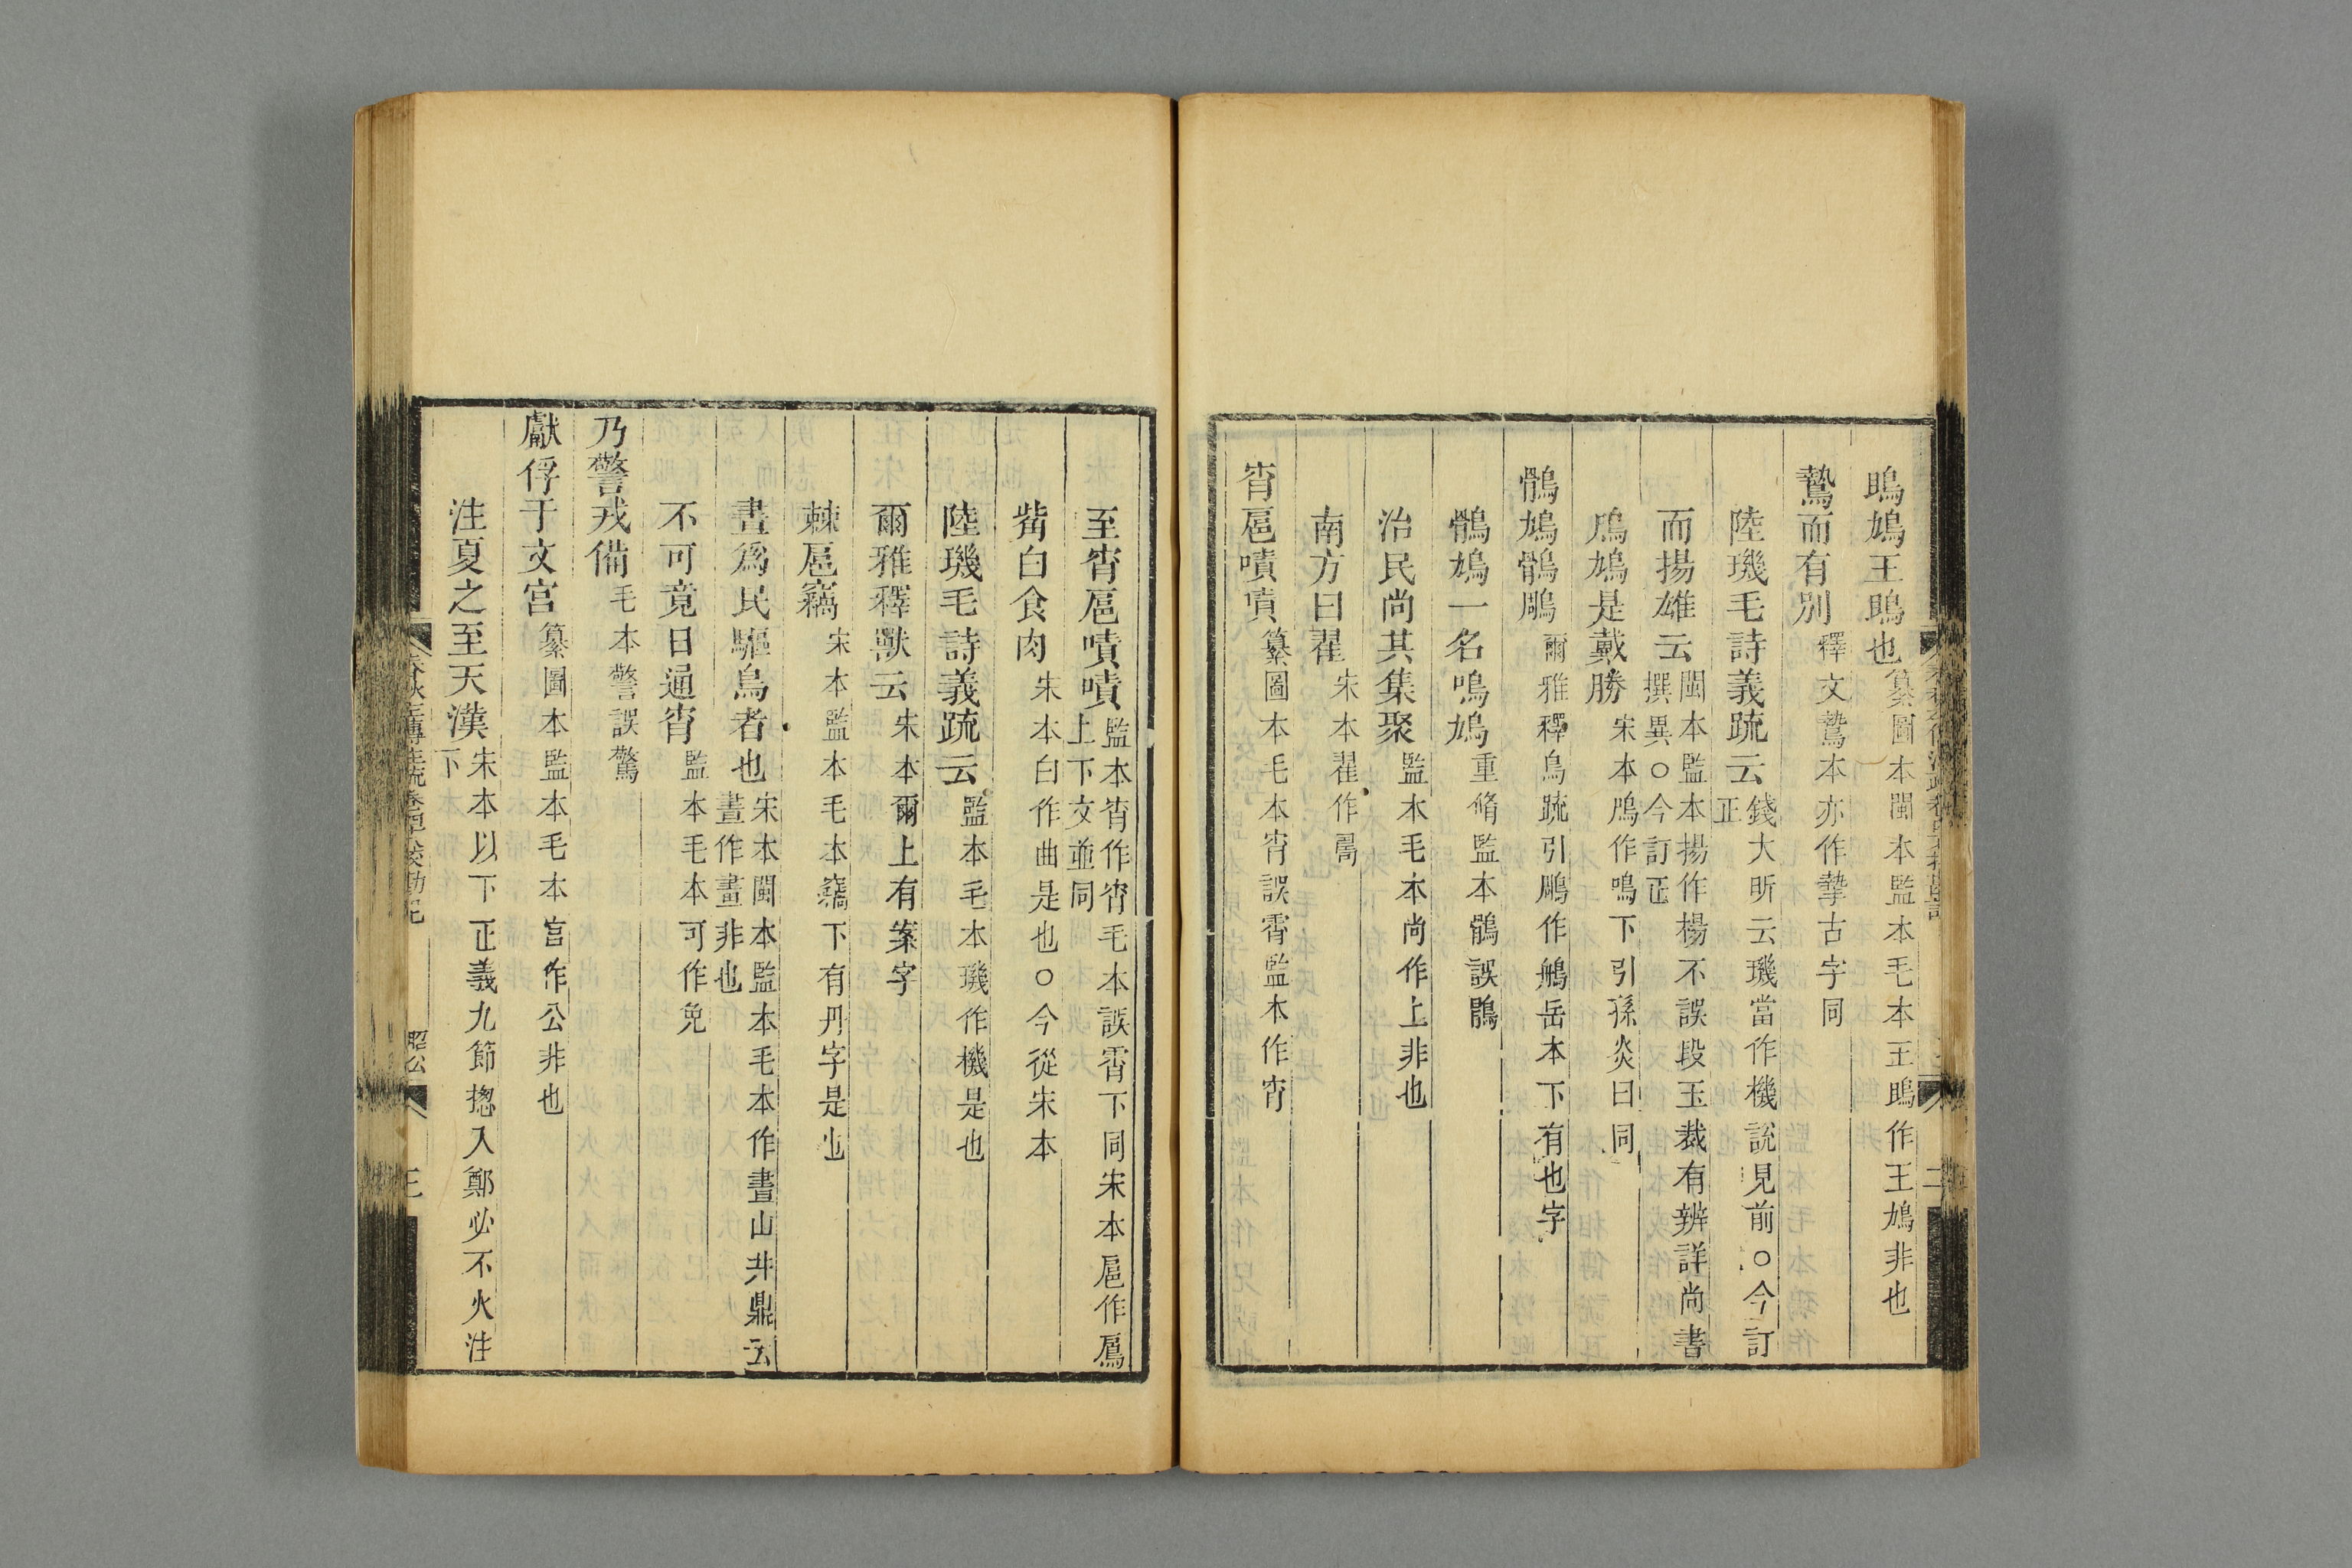 鴡鳩王鴡也纂圖本閩本監本毛本王鴡作王鳩非也
鷙而有別釋文鷙本亦作摯古字同
陸璣毛詩義疏云錢大昕云璣當作機說見前○今訂正
而揚雄云閩本監本揚作楊不誤段玉裁有辨詳尚書撰異○今訂正
鳲鳩是戴勝宋本鳲作鳴下引孫炎曰同
鶻鳩鶻鵰爾雅釋鳥疏引鵰作鵃岳本下有也字
鶻鳩一名鳴鳩重脩監本鶻誤鶻
治民尚其集聚監本毛本尚作上非也
南方曰翟宋本翟作𦒎
宵扈嘖嘖纂圖本毛本宵誤霄監本作宵
至宵扈嘖嘖監本宵作宵毛本誤霄下同宋本扈作鳸上下文並同
觜白食肉宋本白作曲是也○今從宋本
陸璣毛詩義疏云監本毛本璣作機是也
爾雅釋獸云宋本爾上有案字
棘扈竊宋本監本毛本竊下有丹字是也
晝爲民驅鳥者也宋本閩本監本毛本作晝山井鼎云晝作畫非也
不可竟日通宵監本毛本可作免
乃警戎備毛本警誤驚
獻俘于文宮纂圖本監本毛本宮作公非也
注夏之至天漢宋本以下正義九節摠入鄭必不火注下
昭公
三